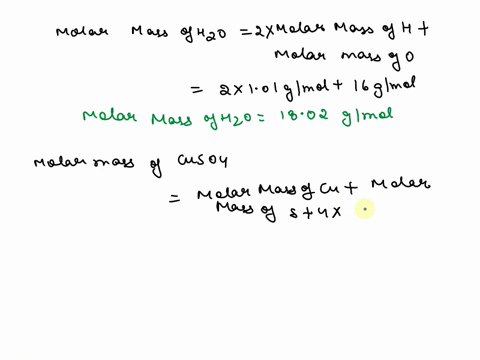 Molar Mass of H2O = 2x Molar Mass of H +
Molar mass of O
= 2x1.01 g/mol + 16 g/mol
Molar Mass of H2O = 18.02 g/mol
Molar mass of CuSO4
= Molar Mass of Cu + Molar
Mass of S + 4x